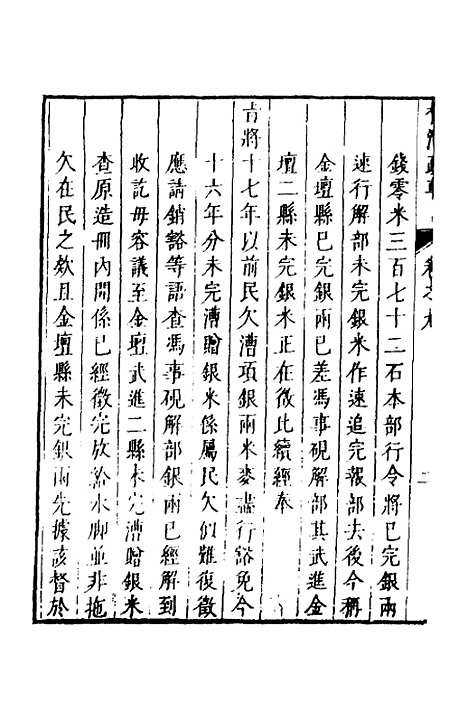 錢零米三百七十二石本部行令將已完銀兩
速行解部未完銀米作速追完報部去後今稱
金壇縣已完銀兩已差馮事硯解部其武進金
壇二縣未完銀米正在徵比續經奉
旨將十七年以前民欠漕項銀兩米麥盡行豁免今
十六年分未完漕贈銀米係屬民欠似難復徵
應請銷豁等語查馮事硯解部銀兩已經解到
收訖毋容議至金壇武進二縣未完漕贈銀米
查原造冊內開係已經徵完放給水脚並非拖
欠在民之欸且金壇縣未完銀兩先據該督於
卷之九